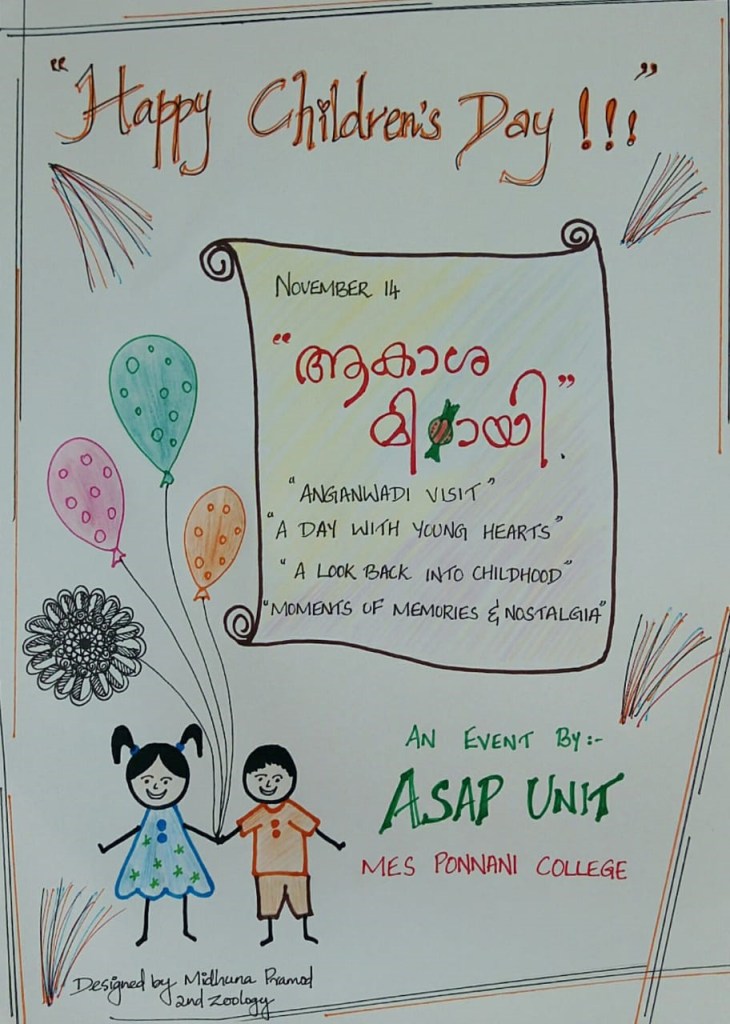 "Happy Children's Day !!!"
NOVEMBER 14
"ആകാശ
മിഠായി".
"ANGANWADI VISIT"
"A DAY WITH YOUNG HEARTS"
"A LOOK BACK INTO CHILDHOOD"
"MOMENTS OF MEMORIES & NOSTALGIA"
AN EVENT BY:-
ASAP UNIT
MES PONNANI COLLEGE
Designed by Midhuna Pramod
2nd Zoology